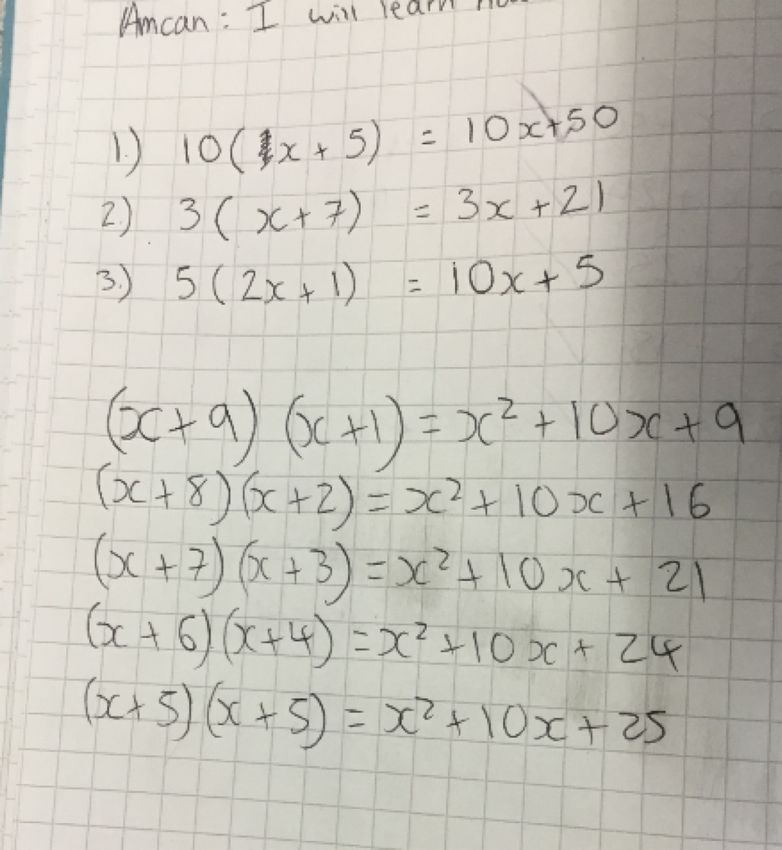 Amcan: I will learn
1.) 10(1x + 5) = 10x+50
2.) 3(x+7) = 3x +21
3.) 5(2x+1) = 10x+5
(x+9)(x+1)=x²+10x+9
(x+8)(x+2)=x²+10x+16
(x+7)(x+3)=x²+10x+21
(x+6)(x+4)=x²+10x+24
(x+5)(x+5)=x²+10x+25